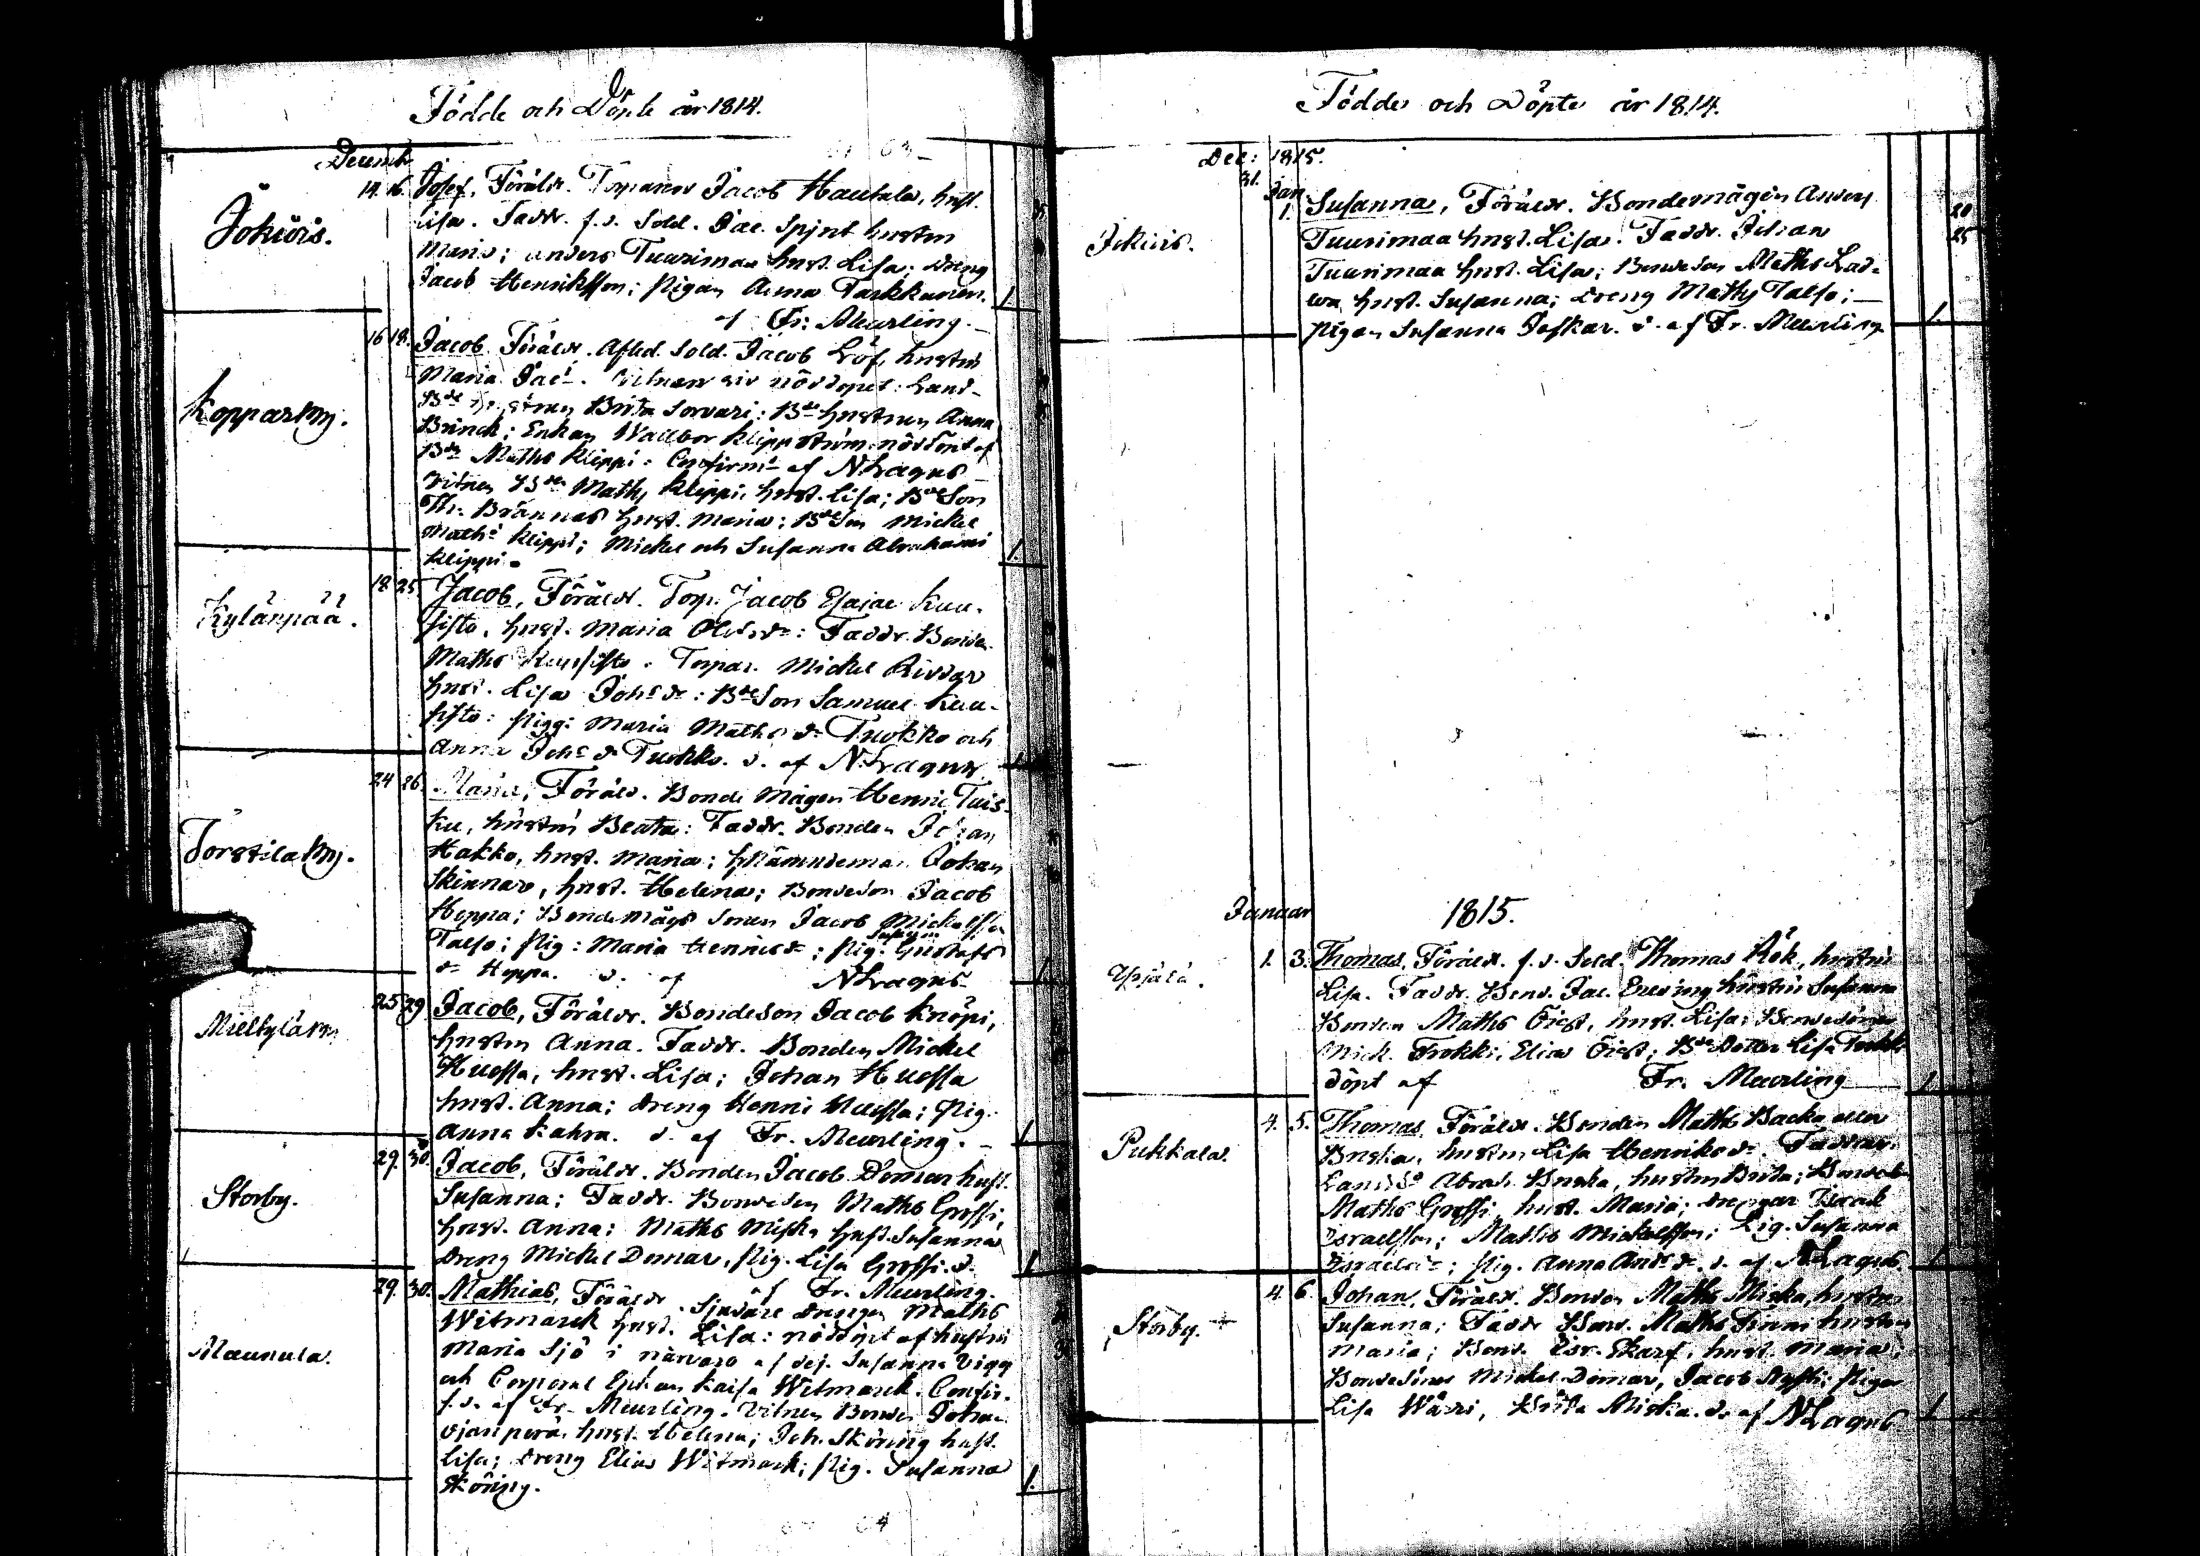 Födde och Döpte år 1814.
Decemb.
Jokiûis.
14. 16. Josef. Föräldr. Torparen Jacob Hautala, hust.
Lisa. Faddr. f.d. Sold. Jac. Spjut hustrun
Maria; Anders Tuurimaa hust. Lisa; dreng
Jacob Henriksson; Pigan Anna Parkkanen.
af Fr: Meurling.
Kopparby.
16 18. Jacob. Föräldr. Afsked. Sold. Jacob Löf, hustru
Maria Jac. Vitnen vid nöddopet: Land-
Bde hustrun Brita Sorvari: Bde hustrun Anna
Brinck; Enkan Wallbor Klippström. nöddöpt af
Bdn Maths Klippi. Confirm. af NLagus
Vitnen Bden Maths Klippi, hust. Lisa; Bde Son
Th. Brännas hust. Maria; Bde Son Mickel
Maths Klippi; Mickel och Susanna Abrahami
Klippi.
Kylänpää.
18 25 Jacob, Föräldr. Torp. Jacob Esaiae Kuu-
sisto, hust. Maria Olofsdr: Faddr. Bonden
Maths Kuusisto. Torpar. Mickel
hust. Lisa Johsdr: Bde Son Samuel Kuu-
sisto: Pigg: Maria Mathsdr Tuokko och
Anna Johs dr Tuokko. d. af N. Lagus.
Torstila by.
24 26. Maria, Föräldr. Bonde Mågen Henric Tuis-
ku, hustru Beata: Faddr. Bonden Johan
Hakko, hust. Maria; Johan
Skinnar, hust. Helena; Bondeson Jacob
Heppa; Bonde mågs Sonen Jacob Mickelsson
Talso; Pig: Maria Henricsdr; Pig. Gustafs
dr Heppa. d. af NLagus
25 29 Jacob, Föräldr. Bondeson Jacob Knöpi,
hustru Anna. Faddr. Bonden Mickel
Huossa, hust. Lisa; Johan Huossa
hust. Anna; dreng Henric Huossa; Pig.
Anna Kahra. d. af Fr. Meurling.
Storby.
29. 30. Jacob, Föräldr. Bonden Jacob Domar hust.
Susanna; Faddr. Bondeson Maths Grossi,
hust. Anna; Maths Miska hust. Susanna
dreng Mickel Domar, Pig. Lisa Grossi. d.
af Fr. Meurling.
Maunula.
29. 30. Mathias, Föräldr. Maths
Witmarck hust. Lisa: nöddöpt af hustru
Maria Sjö i närvaro af dej. Susanna Vigg
och Corporal Enkan Kaisa Witmarck. Confir.
f.d. af Fr. Meurling. Vitnen Bonden Johan
Ojanperä hust. Helena; Joh. Sköning hust.
Lisa; dreng Elias Witmarck; Pig. Susanna
Sköning.
Födde och Döpte år 1814.
Dec: 1815.
31. Jan
Jokiuis.
1. Susanna, Föräldr. Bondemågen Anders
Tuurimaa hust. Lisa. Faddr. Johan
Tuurimaa hust. Lisa; Bondeson Maths Lad-
wa hust. Susanna; dreng Maths Talso;
Pigan Susanna Paskar. d. af Fr. Meurling
20
25
Januar 1815.
1. 3. Thomas, Föräldr. f.d. Sold. Thomas Rök, hustru
Lisa. Faddr. Bond. Jac. hustru Susanna
Bonden Maths Öist, hust. Lisa; Bondesöner
Mick. Frokki, Elias Öist; Bde Dotter Lisa
döpt af Fr. Meurling
Pukkala.
4. 5. Thomas, Föräldr. Bonden Maths Backa eller
Buska, hustru Lisa Henriksdr. Faddrar
Abrah. Buska, hustru Brita; Bondes
Maths Grossi, hust. Maria; drengar Israel
Israelsson; Mathis Mickelsson; Pig. Susanna
Israelsdr; Pig. Anna Andsdr. d. af NLagus.
Storby.
4. 6. Johan, Föräldr. Bonden Maths Miska, hustru
Susanna; Faddr Bond. Maths Finni hustru
Maria; Bond. Isr. Skarf, hust. Maria;
Bondesöner Mickel Domar, Jacob Pigor
Lisa Wäiri, Brita Miska. d. af NLagus